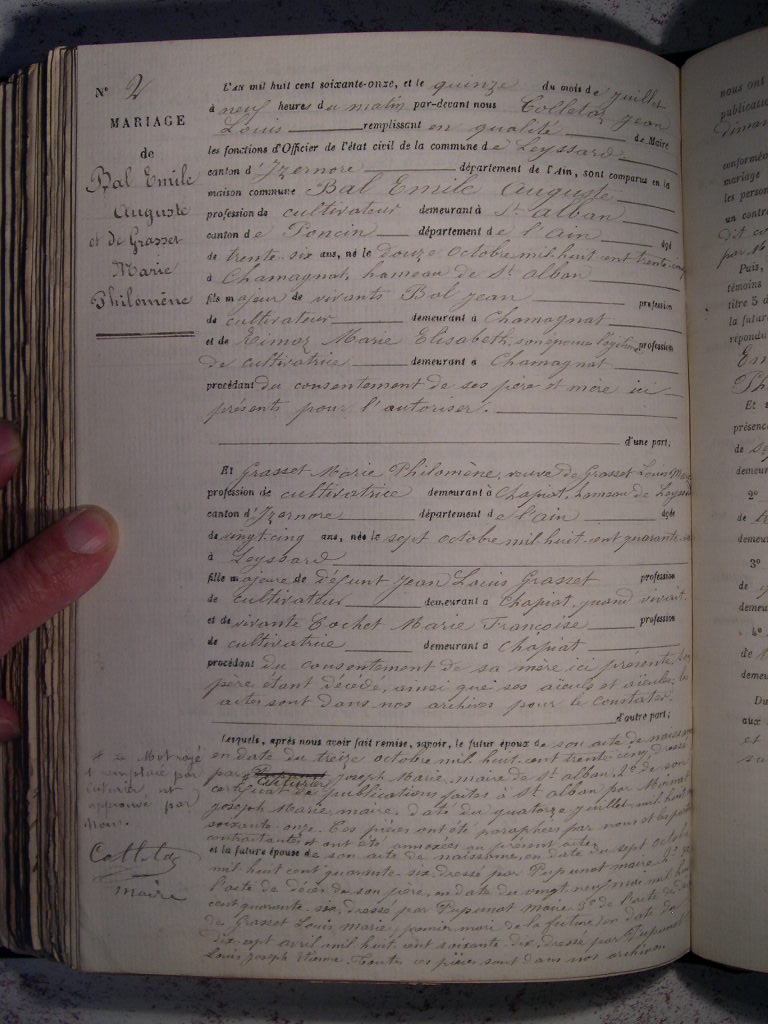 N° 2
MARIAGE
de
Bal Emile
Auguste
et de Grasset
Marie
Philomène
L'an mil huit cent soixante-onze, et le quinze du mois de juillet
à neuf heures du matin par-devant nous Colletaz Jean
Louis remplissant en qualité de Maire
les fonctions d'Officier de l'état civil de la commune de Leyssard
canton d'Izernore département de l'Ain, sont comparus en la
maison commune Bal Emile Auguste
profession de cultivateur demeurant à St alban
canton de Poncin département de l'ain âgé
de trente six ans, né le douze octobre mil huit cent trente cinq
à Chamagnat, hameau de St alban
fils majeur de vivants Bal Jean profession
de cultivateur demeurant à Chamagnat
et de Marie Elisabeth, son épouse légitime profession
de cultivatrice demeurant à Chamagnat
procédant du consentement de ses père et mère ici
présents pour l'autoriser.
d'une part;
Et Grasset Marie Philomène, veuve de Grasset Louis Marie
profession de cultivatrice demeurant à Chapiat, hameau de Leyssard
canton d'Izernore département de l'ain âgée
de vingt-cinq ans, née le sept octobre mil huit cent quarante-six
à Leyssard
fille majeure de défunt Jean Louis Grasset profession
de cultivateur demeurant à Chapiat, quand vivait
et de vivante Cochet Marie Françoise profession
de cultivatrice demeurant à Chapiat
procédant du consentement de sa mère ici présente, son
père étant décédé, ainsi que ses aïeuls et aïeules; les
actes sont dans nos archives pour le constater.
d'autre part;
Lesquels, après nous avoir fait remise, savoir, le futur époux de son acte de naissance
en date du treize octobre mil huit cent trente cinq dressé
par Joseph Marie, maire de St alban, 2° de son
certificat de publications faites à St alban par
Joseph Marie, maire, daté du quatorze juillet mil huit cent
soixante-onze. Ces pièces ont été paraphées par nous et les parties
contractantes et ont été annexées au présent acte;
et la future épouse de son acte de naissance, en date du sept octobre
mil huit cent quarante-six, dressé par Pupunat maire 2° de
l'acte de décès de son père, en date du vingt neuf mai mil huit
cent quarante-six, dressé par Pupunat maire 3° de l'acte de décès
de Grasset Louis Marie, premier mari de la future, en date du
dix-sept avril mil huit cent soixante-dix, dressé par Pupunat
Louis Joseph Etienne. Toutes ces pièces sont dans nos archives
Mot rayé
et remplacé par
et
approuvé par
nous.
Colletaz
maire